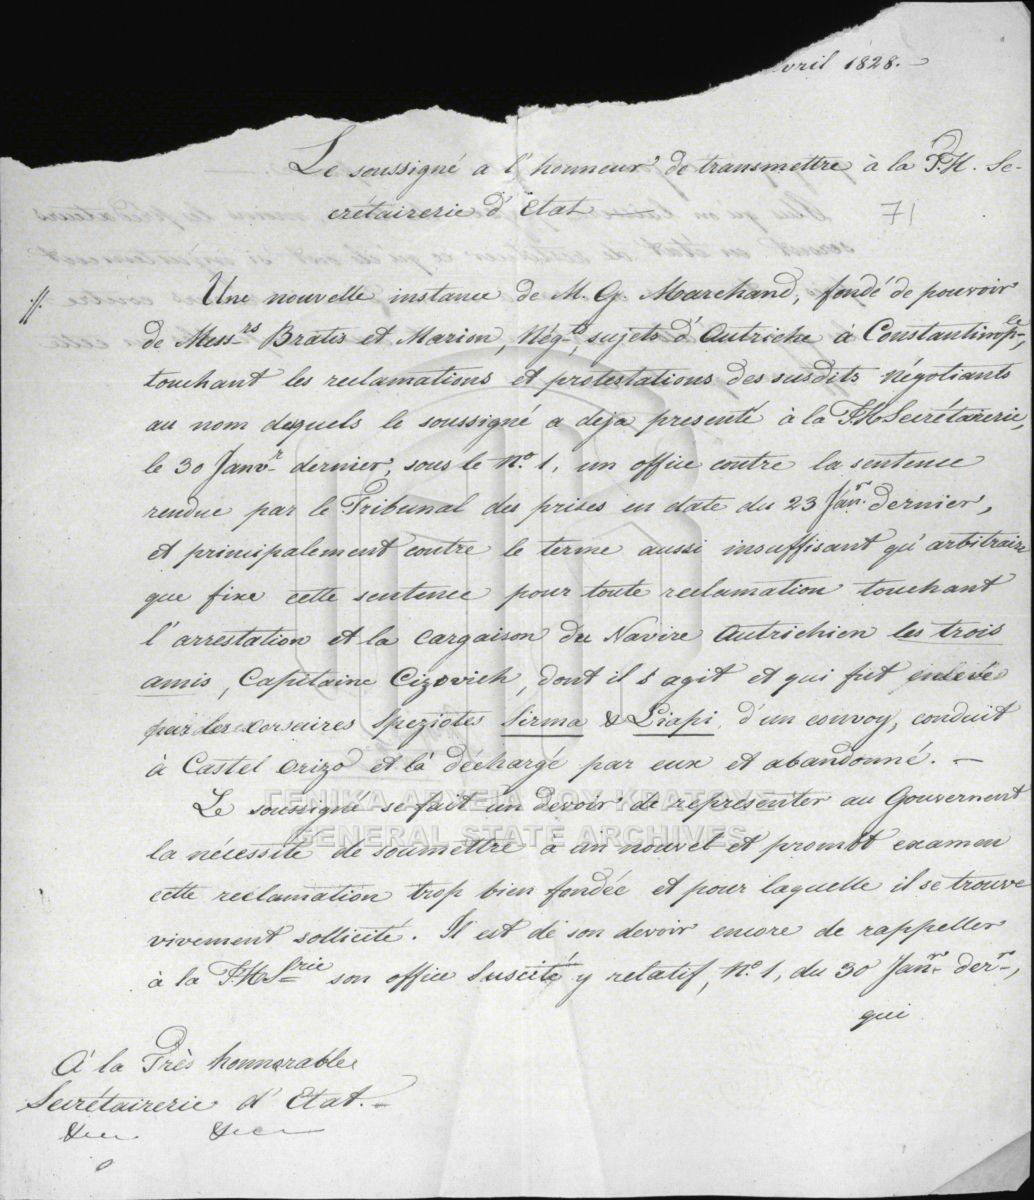 vril 1828.
Le soussigné a l'honneur de transmettre à la T.H. Se-
crétairerie d'Etat
71
//.
Une nouvelle instance de M. G. Marchand, fondé de pouvoir
de Mess.rs Bratis et Marion, Nég.ts, sujets d'Autriche à Constantinop.le,
touchant les reclamations et protestations des susdits Négotiants
au nom desquels le soussigné a deja presenté à la T.H. Secrétairerie,
le 30 Janv.r dernier, sous le N.o 1, un office contre la sentence
rendue par le Tribunal des prises en date du 23 Jan.r dernier,
et principalement contre le terme aussi insuffisant qu'arbitraire
que fixe cette sentence pour toute reclamation touchant
l'arrestation et la cargaison du Navire Autrichien les trois
amis, Capitaine Cizovich, dont il s'agit et qui fut enlevé
par les corsaires Speziotes Sirma & Liapi, d'un convoy, conduit
à Castel Orizo et là déchargé par eux et abandonné. —
ΓΕΝΙΚΑ ΑΡΧΕΙΑ ΤΟΥ ΚΡΑΤΟΥΣ
GENERAL STATE ARCHIVES
Le soussigné se fait un devoir de representer au Gouvernent
la nécessité de soumettre à un nouvel et prombt examen
cette reclamation trop bien fondée et pour laquelle il se trouve
vivement sollicité. Il est de son devoir encore de rappeller
à la T.H. S.rie son office suscité y relatif, N.o 1, du 30 Jan.r der.r,
qui
A la Très honnorable
Secrétairerie d'Etat.
&cc &cc